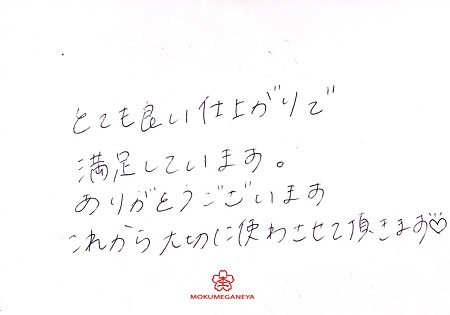 とても良い仕上がりで
満足しています。
ありがとうございます
これから大切に使わさせて頂きます♡
MOKUMEGANEYA